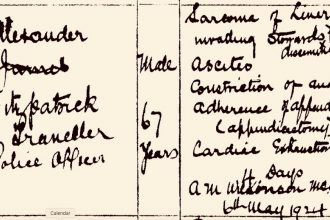 Alexander
James
Fitzpatrick
Traveller
Police Officer
Male
67
Years
Sarcoma of Liver
invading Stomach
Ascites
Constriction of
Adherence of
(appendicectomy)
Cardiac Exhaustion
4 Days
A M Wilkinson
6th May 1924
Calendar